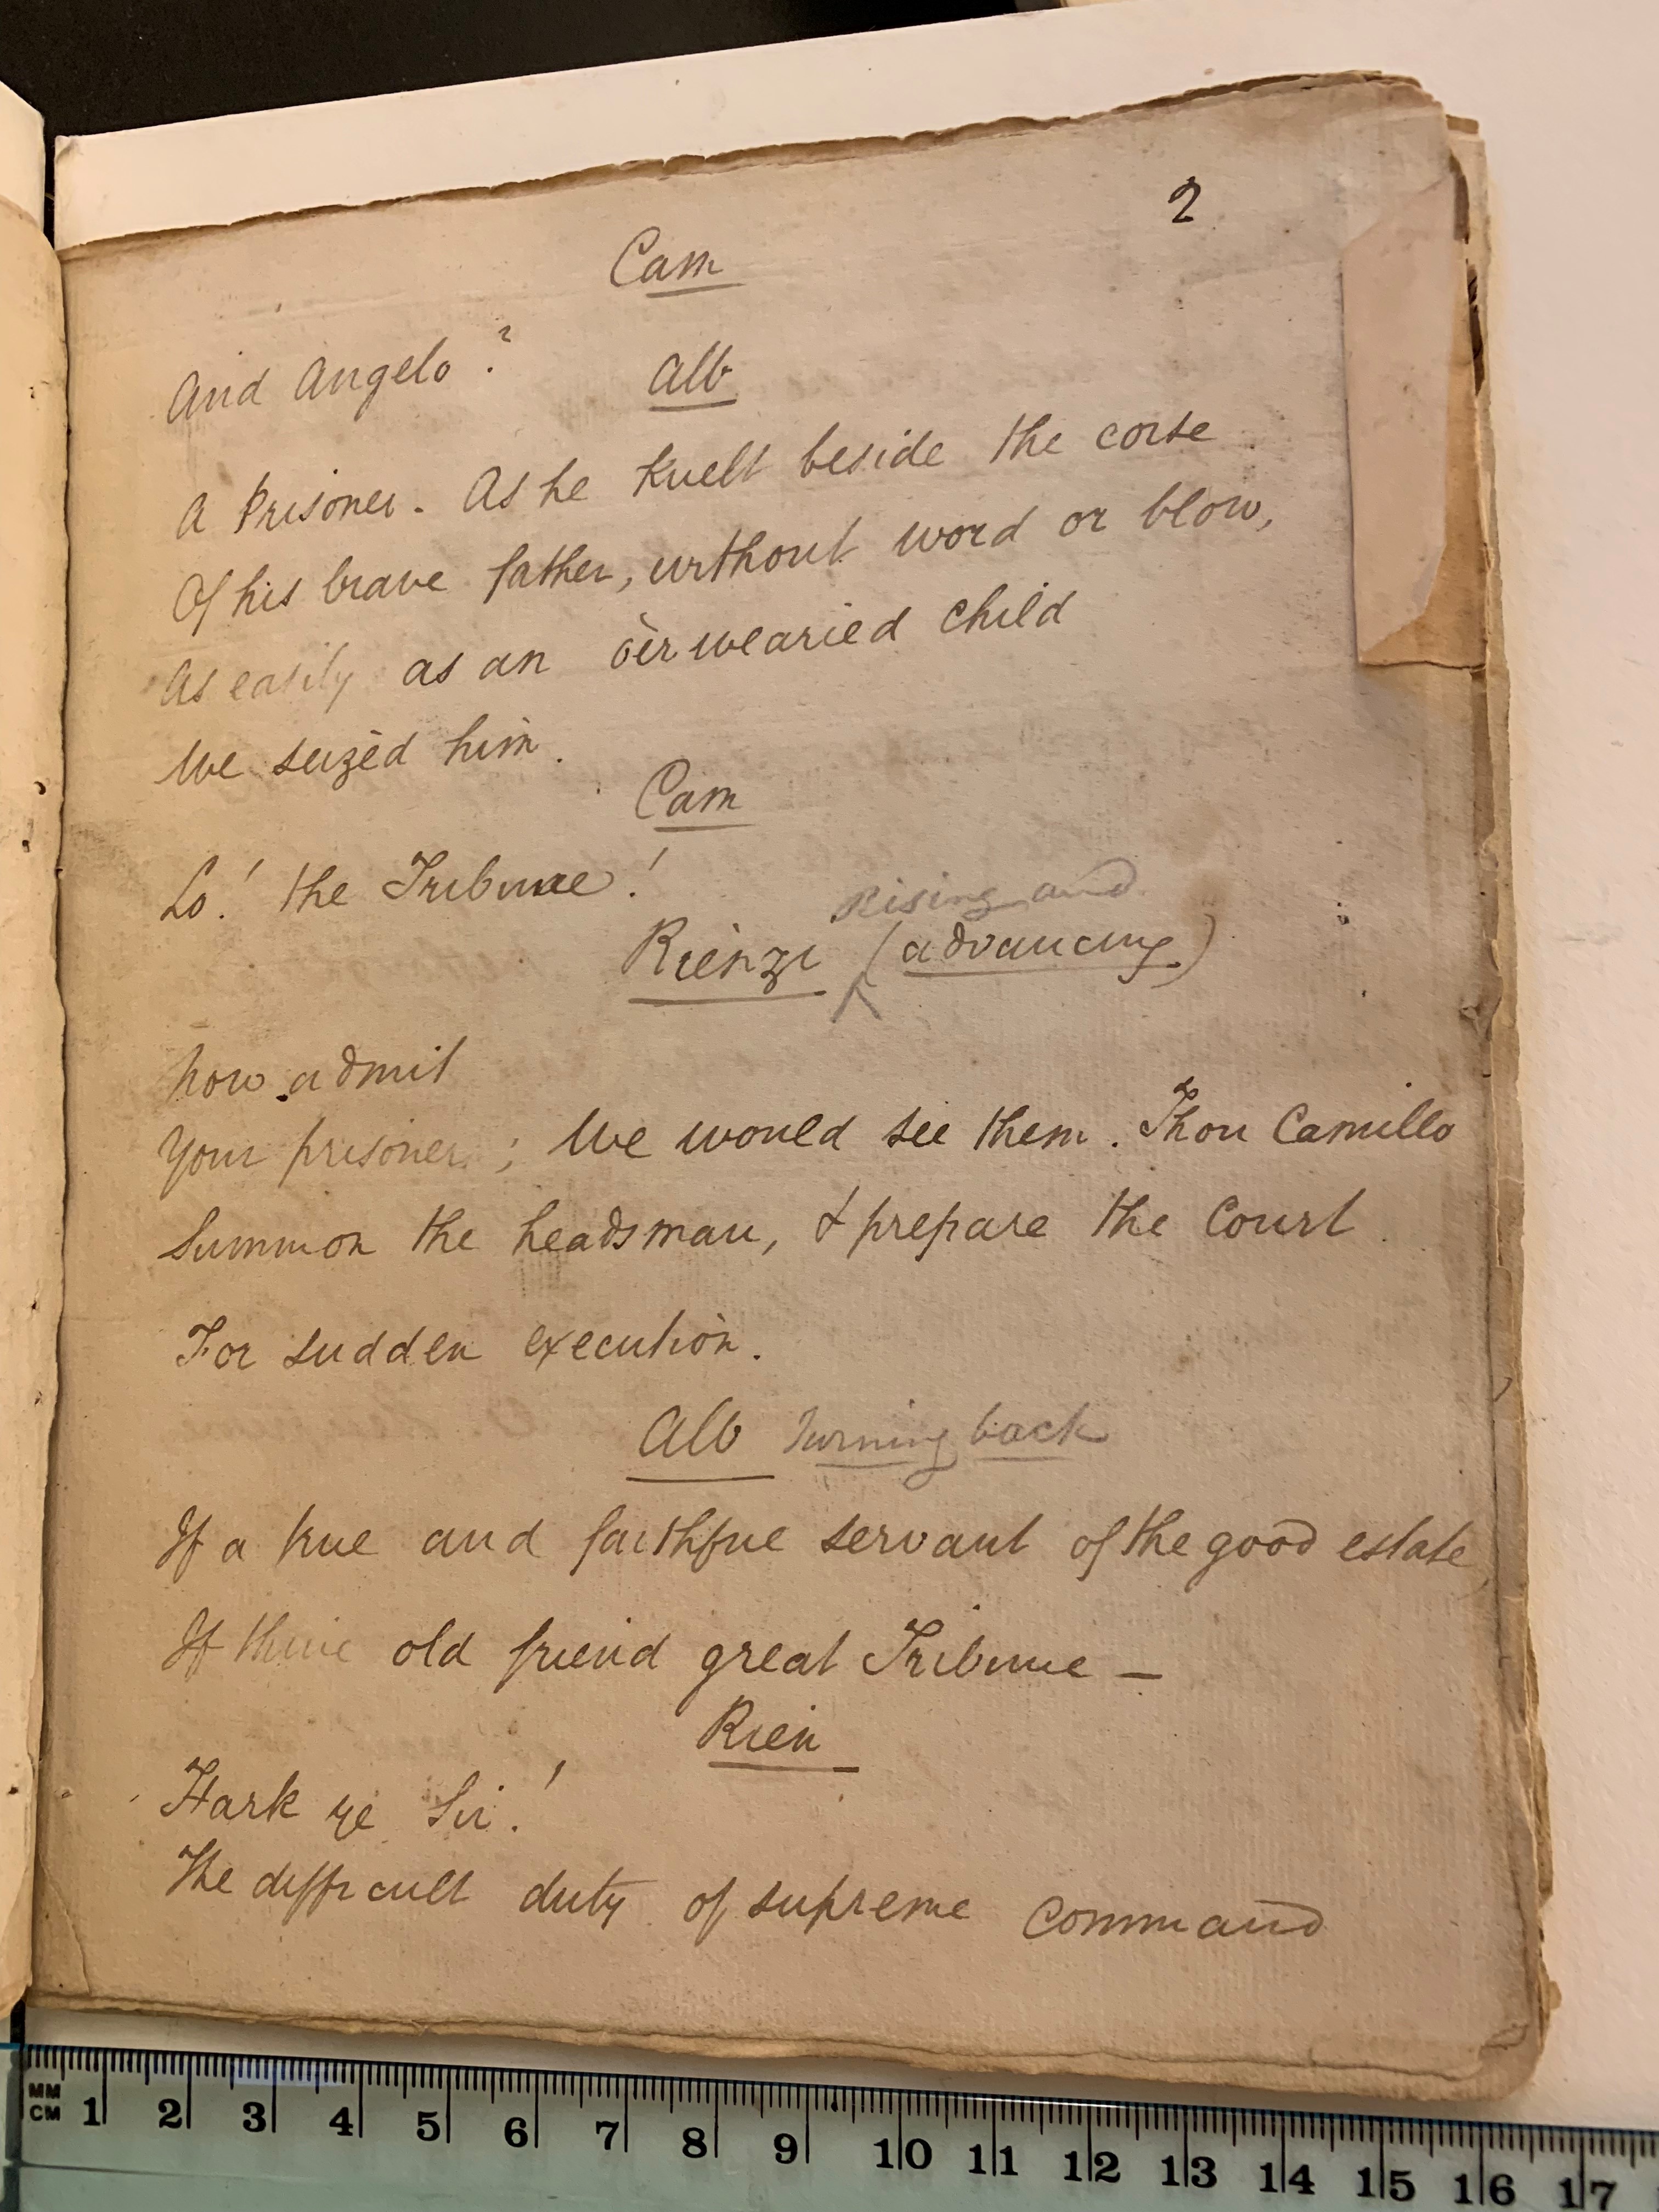 2
Cam
And Angelo?
Alb
A Prisoner. As he knelt beside the corse
Of his brave father, without word or blow,
As easily as an o'erwearied child
We seized him.
Cam
Lo! the Tribune!
Rising and
Rienzi (advancing)
now admit
Your prisoner; We would see them. Thou Camillo
Summon the headsman, & prepare the Court
For sudden execution.
Alb Turning back
If a true and faithful servant of the good estate,
If thine old friend great Tribune —
Rien
Hark ye Sir!
The difficult duty of supreme Command
MM
CM 1 2 3 4 5 6 7 8 9 10 11 12 13 14 15 16 17